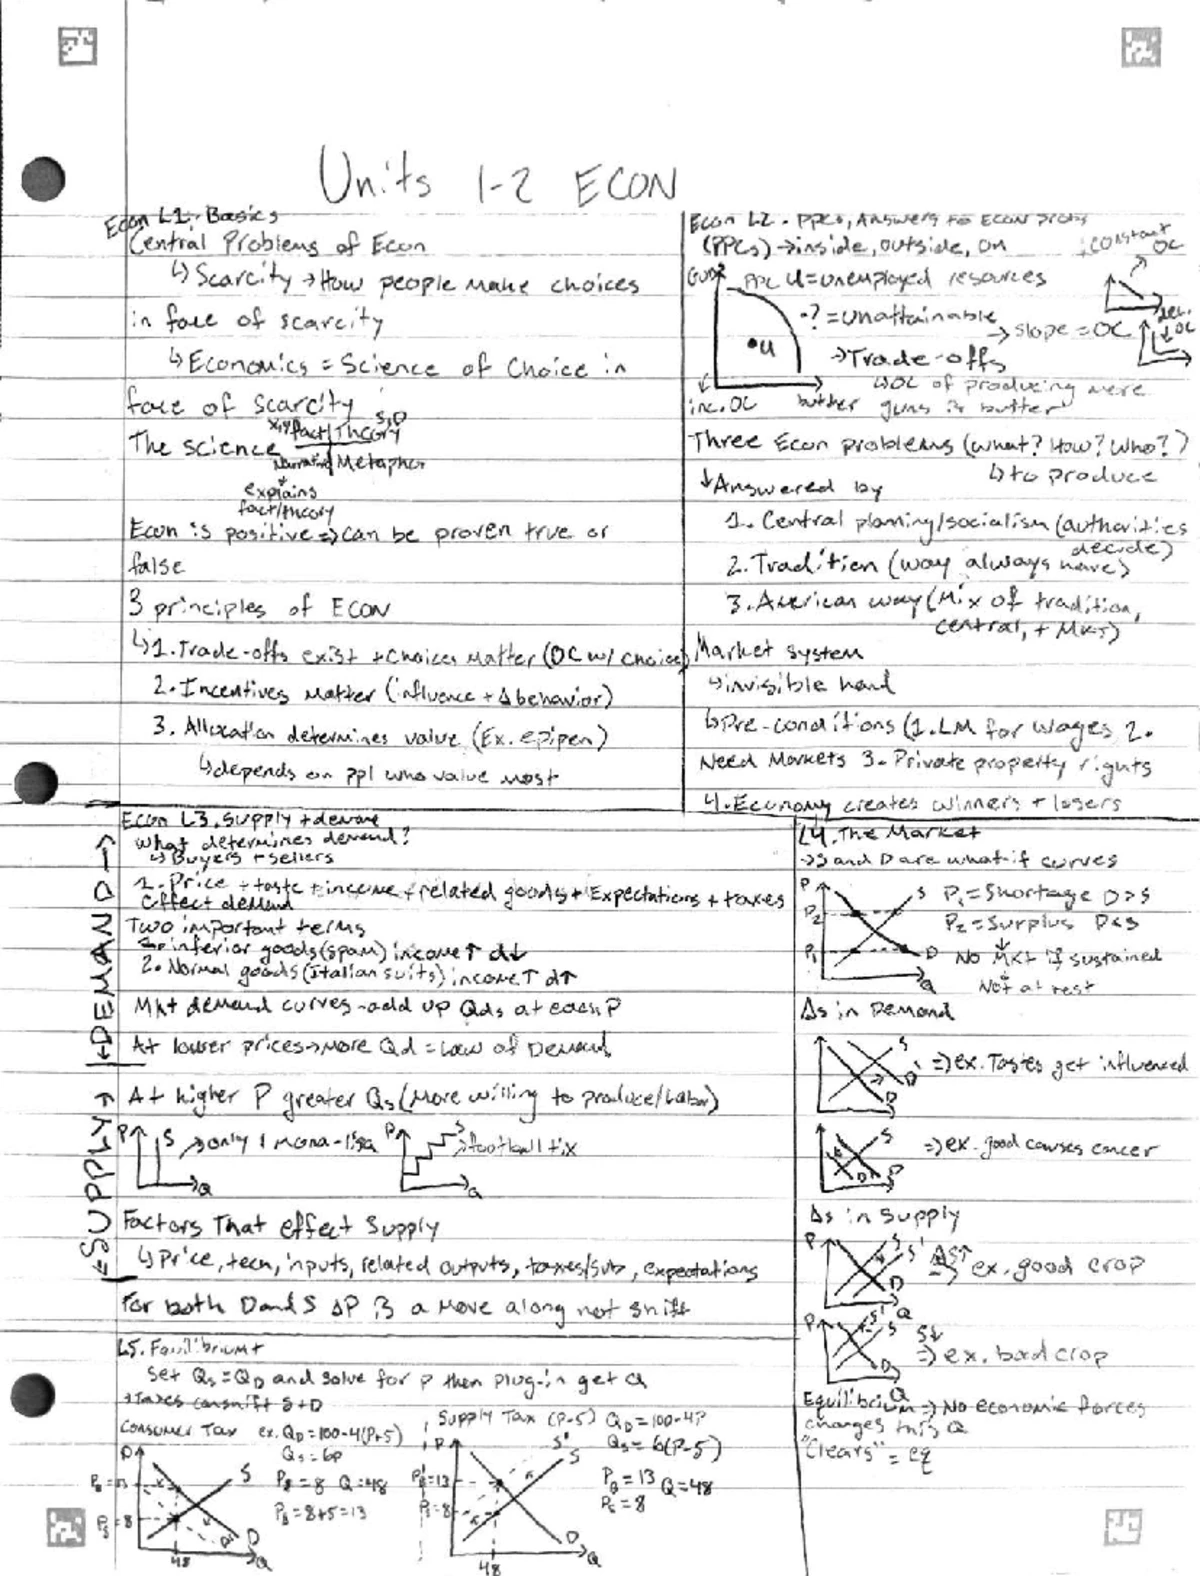 Units 1-2 ECON
Econ L1. Basics
Central Problems of Econ
↳ Scarcity → How people make choices
in face of scarcity
↳ Economics = Science of Choice in
face of scarcity
The science
x,y,z fact | Theory S,D
Narrative | Metaphor
explains
fact/theory
Econ is positive => can be proven true or
false
3 principles of ECON
↳ 1. Trade-offs exist + Choices Matter (OC w/ choice)
2. Incentives Matter (influence + Δ behavior)
3. Allocation determines value (Ex. epipen)
↳ depends on ppl who value most
Econ L2. PPCs, Answers to Econ probs
(PPCs) → inside, outside, on
constant
OC
PPC U = unemployed resources
•? = Unattainable
→ slope = OC
dec.
OC
•U
→ Trade-offs
↳ OC of producing more
inc. OC
butter guns is butter
Three Econ problems (what? How? Who?)
↳ to produce
↓ Answered by
1. Central planning/socialism (authorities
decide)
2. Tradition (way always have)
3. American way (Mix of tradition,
central, + MKT)
Market system
↳ invisible hand
↳ Pre-conditions (1. LM for wages 2.
Need Markets 3. Private property rights
4. Economy creates winners + losers
←DEMAND→
Econ L3. Supply + demand
What determines demand?
↳ Buyers + sellers
1. Price + taste + income + related goods + Expectations + taxes
Effect demand
Two important terms
inferior goods (spam) income↑ d↓
2. Normal goods (Italian suits) income↑ d↑
Mkt demand curves - add up Qds at each P
At lower prices → more Qd = Law of Demand
←SUPPLY→
At higher P greater Qs (More willing to produce/labor)
P S → only 1 mona-lisa
Q
P S → football tix
Q
Factors That effect Supply
↳ Price, tech, inputs, related outputs, taxes/sub, expectations
For both D and S ΔP is a move along not shift
L4. The Market
→ S and D are what-if curves
P S P₁ = Shortage D>S
P₂ P₂ = Surplus D<S
P₁ D No Mkt if sustained
Q Not at rest
Δs in Demand
S => ex. Tastes get influenced
D D
S => ex. good causes cancer
D
Δs in Supply
P S S' ΔS↑
=> ex. good crop
D
Q
P S' S S↓
=> ex. bad crop
D
Q
Equilibrium => No economic forces
changes this Q
"Clears" = eq
L5. Equilibrium
Set Qs = QD and solve for P then plug-in get Q
→ Taxes can shift S+D
Consumer Tax ex. QD = 100-4(P+5)
Qs = 6P
P S Ps = 8 Q = 48
PB = 8+5 = 13
PB = 13
Ps = 8
D
48 Q
Supply Tax (P-5) QD = 100-4P
Qs = 6(P-5)
P S' S
PB = 13 Q = 48
Ps = 8
PB = 13
Ps = 8
D
48 Q